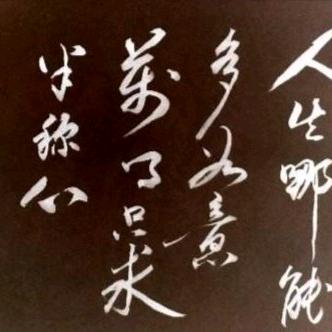 人生哪能
多如意
萬事只求
半称心